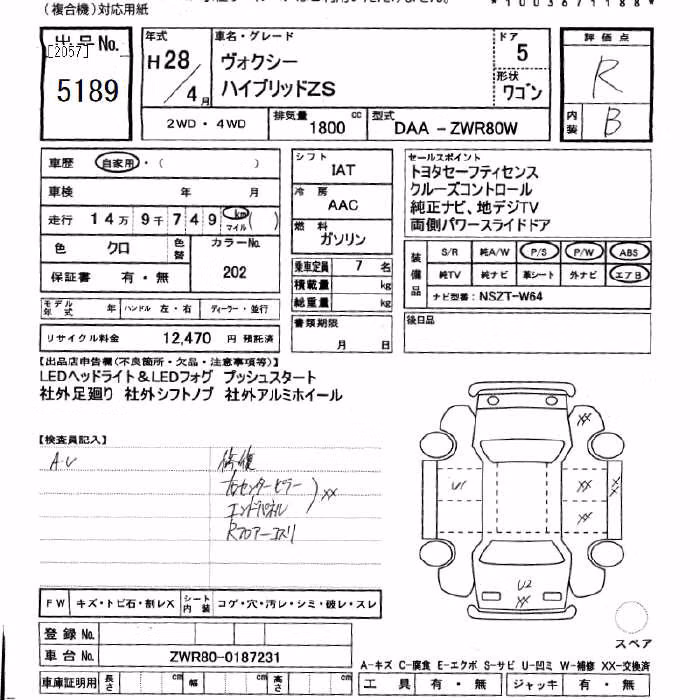 (複合機)対応用紙
*1003671188*
出品No.
[2057]
5189
年式
H28/4月
車名・グレード
ヴォクシー
ハイブリッドZS
ドア
5
形状
ワゴン
評価点
R
内装
B
2WD・4WD
排気量
1800 cc
型式
DAA-ZWR80W
車歴 自家用・( )
車検 年 月
走行 14万9千749 km マイル ( )
色 クロ 色替
カラーNo.
202
保証書 有・無
モデル年式 年 ハンドル 左・右 ディーラー・並行
リサイクル料金 12,470 円 預託済
シフト
IAT
冷房
AAC
燃料
ガソリン
乗車定員 7 名
積載量 kg
総重量 kg
書類期限
月 日
セールスポイント
トヨタセーフティセンス
クルーズコントロール
純正ナビ、地デジTV
両側パワースライドドア
装備品
S/R 純A/W P/S P/W ABS
純TV 純ナビ 革シート 外ナビ エアB
ナビ型番: NSZT-W64
後日品
【出品店申告欄(不良箇所・欠品・注意事項等)】
LEDヘッドライト&LEDフォグ プッシュスタート
社外足廻り 社外シフトノブ 社外アルミホイール
【検査員記入】
A・U
修復
右センターピラー
エンドパネル
XX
Rフロアー
XX
U1
XX
XX
XX
U2
XX
スペア
FW キズ・トビ石・割レX シート内装 コゲ・穴・汚レ・シミ・破レ・スレ
登録No.
車台No. ZWR80-0187231
車庫証明用 長さ cm 幅 cm 高さ cm
A-キズ C-腐食 E-エクボ S-サビ U-凹ミ W-補修 XX-交換済
工具 有・無 ジャッキ 有・無